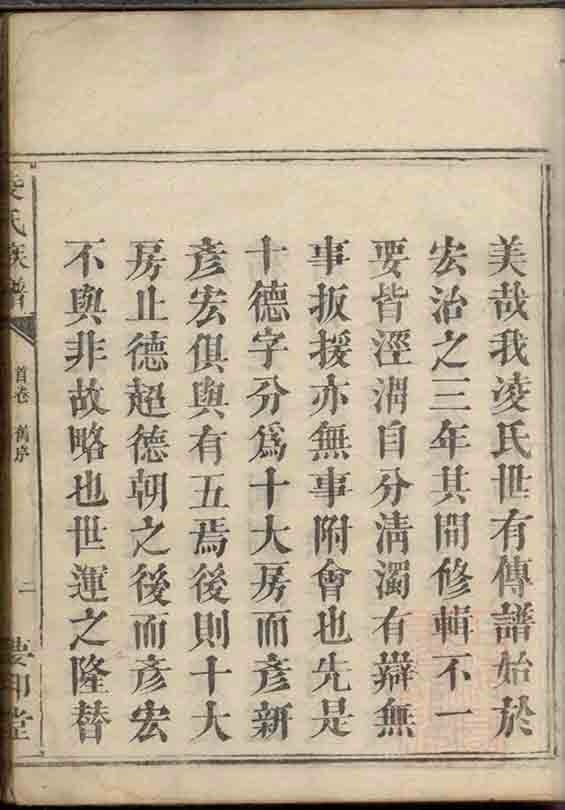 美哉我凌氏世有傳譜始於
宏治之三年其間修輯不一
要皆涇渭自分淸濁有辯無
事扳援亦無事附會也先是
十德字分爲十大房而彥新
彥宏俱與有五焉後則十大
房止德超德朝之後而彥宏
不與非故略也世運之隆替
凌氏族譜
首卷 舊序
二